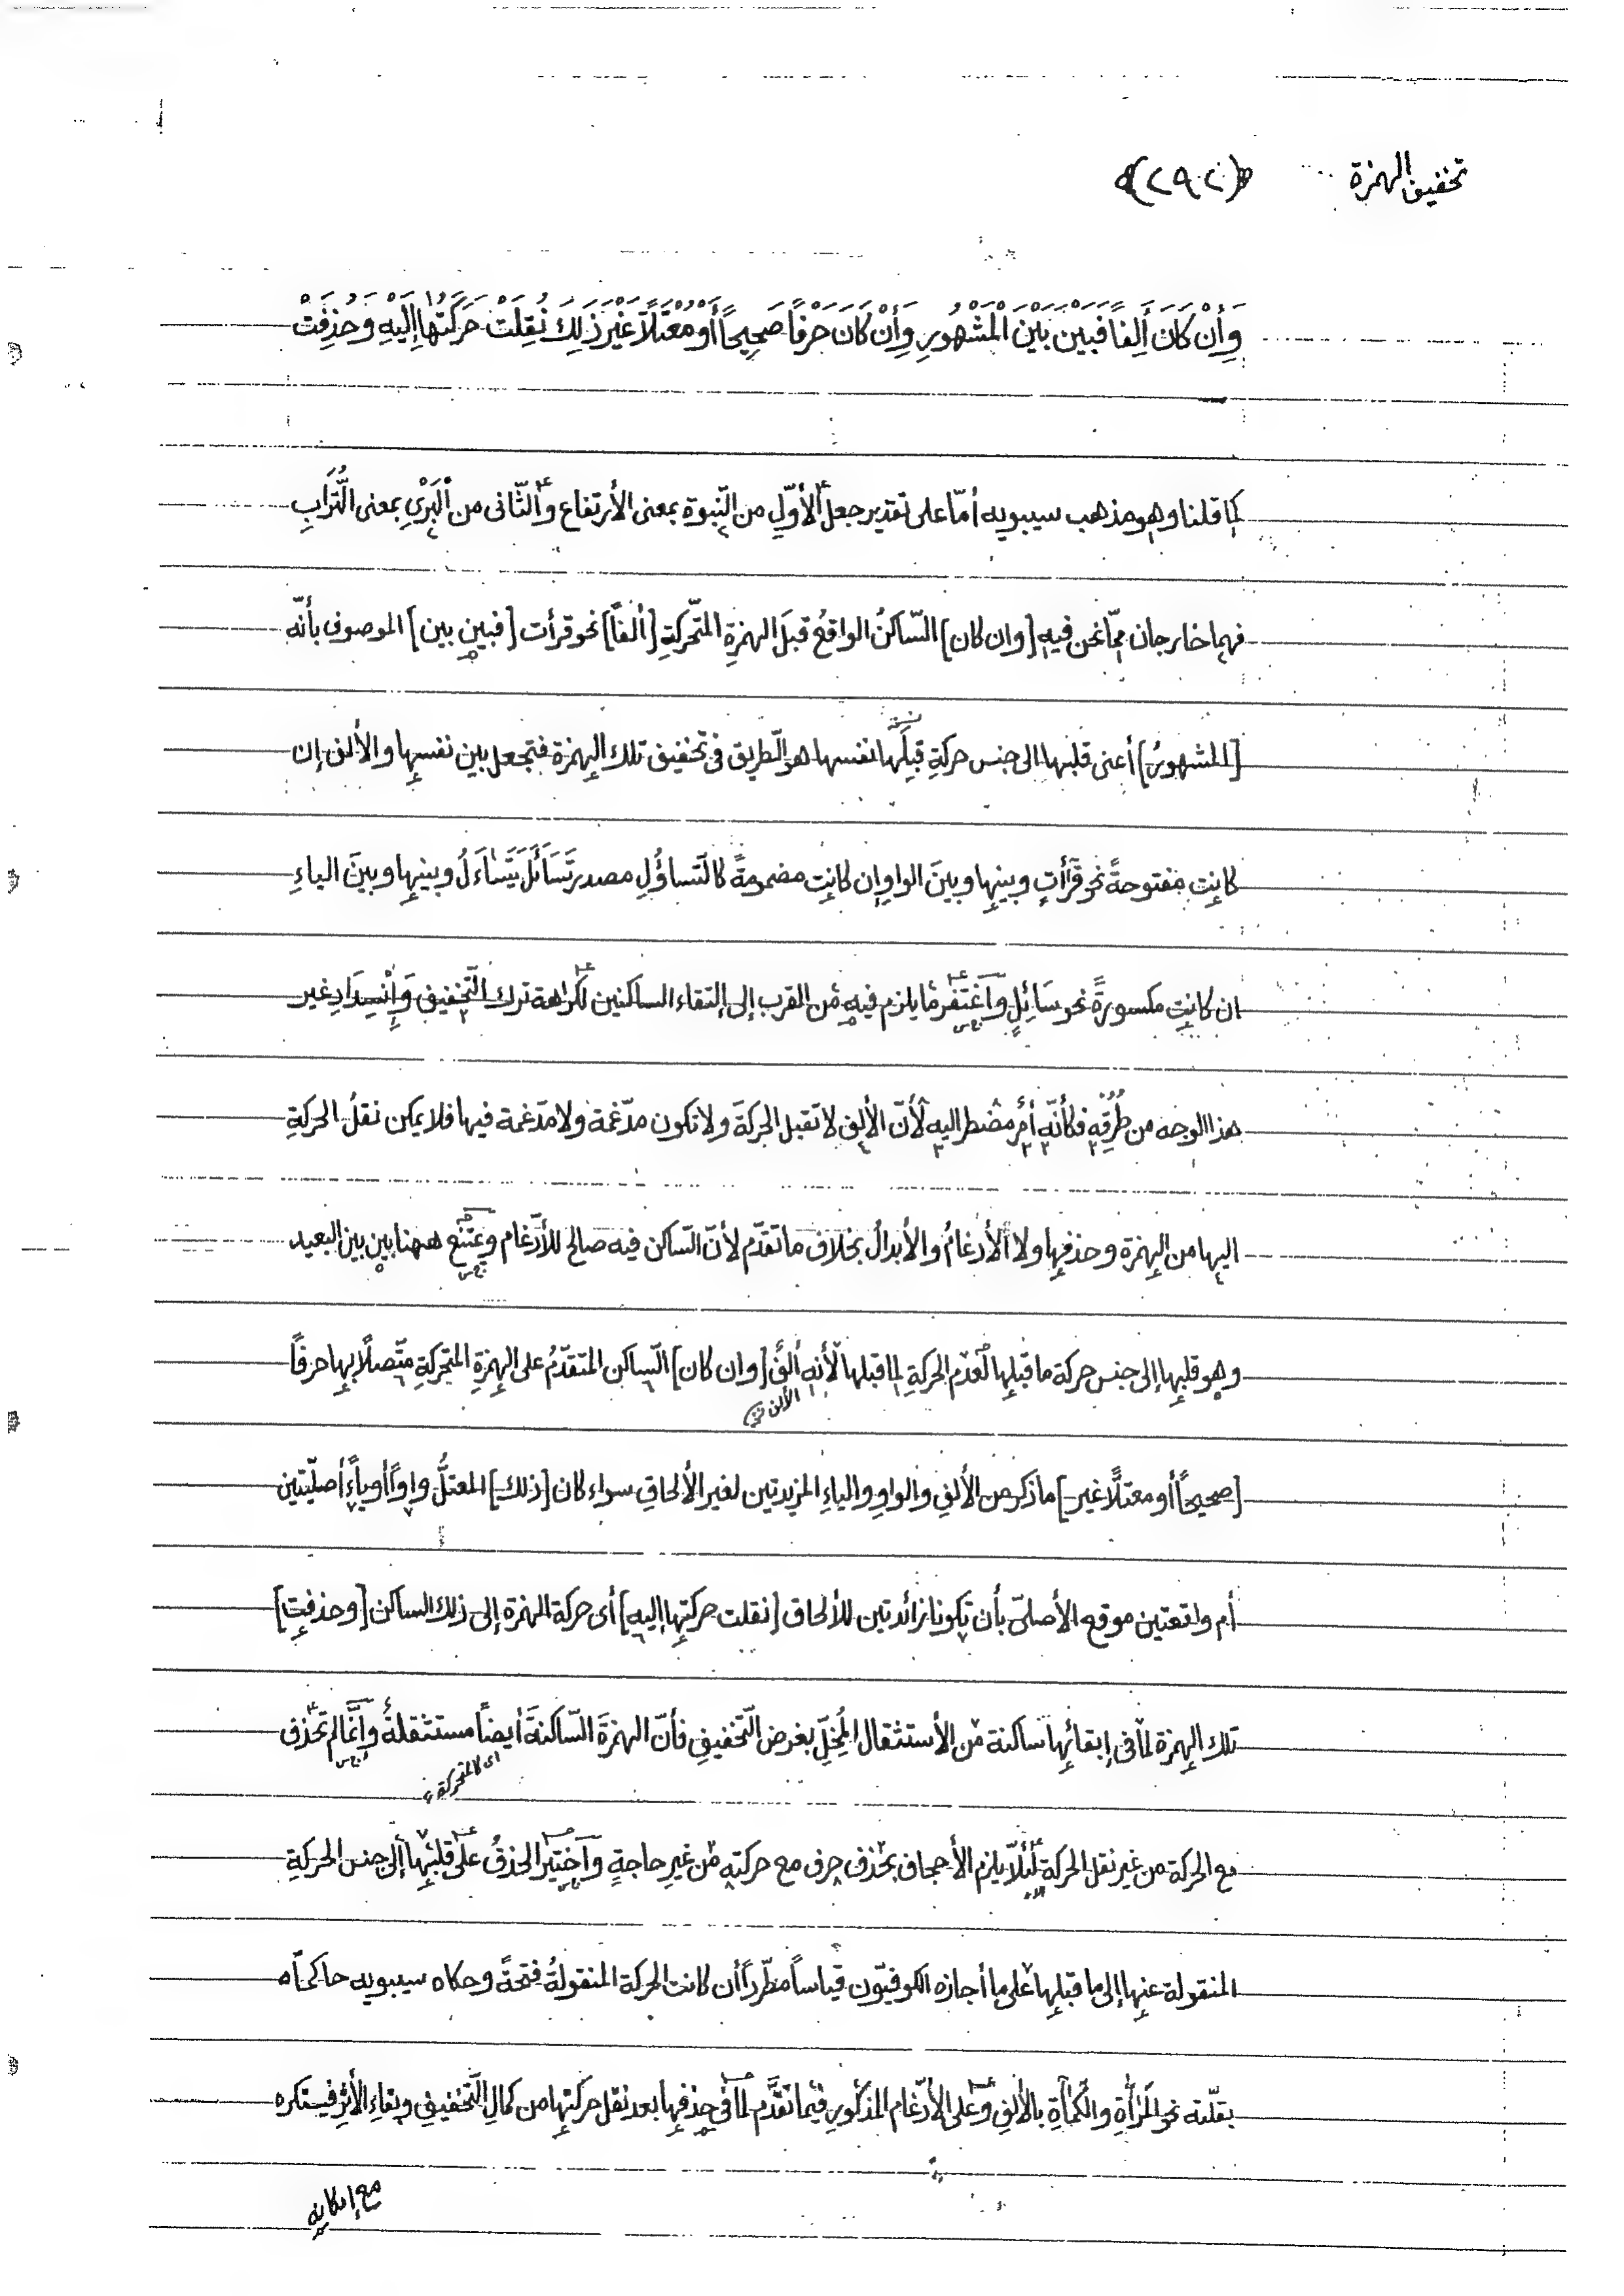 تخفيف الهمزة ﴿٢٩٢﴾
وَأِنْ كَانَ أَلِفاً فَبَيْنَ بَيْنَ الْمَشْهُورِ وَأِنْ كَانَ حَرْفاً صَحِيحاً أَوْ مُعْتَلّاً غَيْرَ ذَلِكَ نُقِلَتْ حَرَكَتُهَا إِلَيْهِ وَحُذِفَتْ
كما قلنا وهو مذهب سيبويه أمّا على تقدير جعل الأوّلِ من النّبوة بمعنى الأرتفاع والثّانى من ألبَرْىِ بمعنى التُّرَابِ
فهما خارجان ممّا نحن فيه [وان كان] السّاكنُ الواقعُ قبلَ الهمزةِ المتّحركةِ [ألفاً] نحو قرأت [فبين بين] الموصوف بأنّه
[المشهورُ] أعنى قلبها الى جنس حركةِ قبلَها نفسها هو الطّريق فى تخفيف تلك الهمزة فتجعل بين نفسها والألف إن
كانت مفتوحةً نحو قرآأت وبينها وبينَ الواو إن كانت مضمومةً كالتّساؤُلِ مصدر تَسَائَلَ يَتَسَاءَلُ وبينها وبينَ الياءِ
ان كانت مكسورةً نحو سَائِلٍ وأغتفر ما يلزم فيه من القرب إلى إلتقاء الساكنين لكراهة ترك التّخفيف وَإِنْسِدَادِ غير
هذا الوجه من طُرُقِهِ فكأنّه أمرٌ مضطر اليه لأنّ الألف لا تقبل الحركةَ ولا تكون مدّغمة ولا مدّغمة فيها فلا يمكن نقلُ الحركةِ
اليها من الهمزة وحذفها ولا ألأدغامُ والأبدالُ بخلاف ما تقدّم لأنّ السّاكن فيه صالح للأدّغام ويمتنع ههنا بين بين البعيد
وهو قلبها إلى جنس حركة ما قبلها لعدم الحركةِ لما قبلها لأنه ألفٌ [وان كان] السّاكن المتقدّمُ على الهمزةِ المتحركةِ متّصلاً بها حرفاً
الألف
[صحيحاً أو معتلّاً غير] ما ذكر من الألفِ والواوِ والياءِ المزيدتين لغير الألحاقِ سواء كان [ذلك] المعتلُّ واواً أو ياءً أصليّتين
أم واقعتين موقع الأصلىّ بأن تكونا زائدتين للألحاق [نقلت حركتها إليه] أى حركة الهمزة إلى ذلك الساكن [وحذفت]
تلك الهمزة لما فى إبقائها ساكنة من الأستثقال المُخِلِّ بغرض التّخفيفِ فأنّ الهمزةَ السّاكنةَ أيضاً مستثقلةٌ وأنّما لم تحذف
اى كالمتحركة
مع الحركة من غير نقل الحركة لئلّا يلزم الأجحاف بحذف حرف مع حركته من غيرِ حاجةٍ وأختير الحذفُ على قلبها إلى جنس الحركةِ
المنقولة عنها إلى ما قبلها على ما أجازه الكوفيّون قياساً مطّرداً أن كانت الحركة المنقولةُ فتحةً وحكاه سيبويه حاكماً
بقلّته نحو المَرْأةِ والكَمْأةِ بالألفِ وعلى الأدّغام المذكورِ فيما تقدّم لما فى حذفها بعد نقل حركتها من كمالِ التّخفيفِ وبقاءِ الأثرِ فيستكره
مع إمكانه